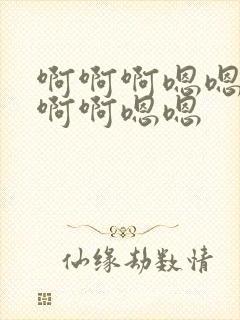 啊啊啊嗯嗯
啊啊嗯嗯
仙缘劫数情